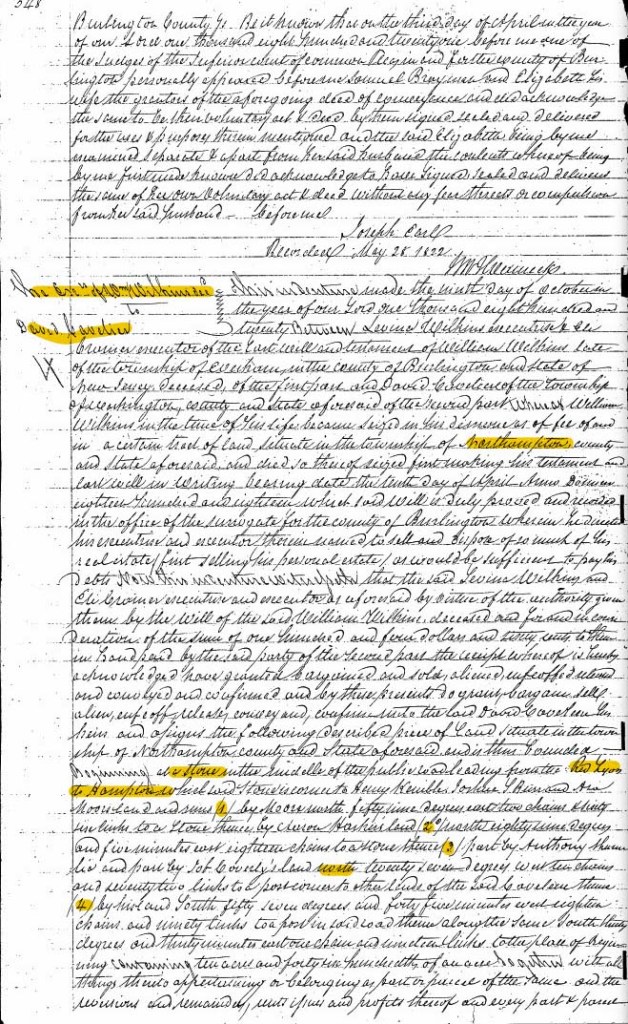 548
Burlington County Ss. Be it known that on the third day of April in the year
of our Lord one thousand eight hundred and twenty one before me one of
the Judges of the Inferior court of common pleas in and for the county of Bur-
lington personally appeared before me Samuel and Elizabeth his
wife the grantors of the aforegoing deed of conveyance and did acknowledge
the same to be their voluntary act & deed by them signed sealed and delivered
for the uses & purposes therein mentioned and the said Elizabeth being by me
examined separate & apart from her said husband the contents whereof being
by me first made known did acknowledge to have signed sealed and delivered
the same of her own voluntary act & deed without any fear threats or compulsion
from her said husband – before me
Joseph Earl
Recorded May 28 1822
Wm
of Wm Wilkins
to
David
This indenture made the ninth day of October in
the year of our Lord one thousand eight hundred and
twenty Between Levina Wilkins executrix & Eli
Cromer executor of the last will and testament of William Wilkins late
of the township of Evesham, in the county of Burlington and state of
New Jersey deceased, of the first part and David of the township
of Washington, county and state aforesaid of the second part Whereas William
Wilkins in the time of his life became seized in his demesne as of fee of and
in a certain tract of land situate in the township of Northampton county
and State aforesaid, and died so thereof seized first making his testament and
last will in writing bearing date the tenth day of April Anno Domini
eighteen hundred and eighteen which said will is duly proved and recorded
in the office of the surrogate for the county of Burlington wherein he directs
his executrix and executor therein named to sell and dispose of so much of his
real estate (first selling his personal estate) as would be sufficient to pay his
debts Now this indenture witnesseth that the said Levina Wilkins and
Eli Cromer executrix and executor as aforesaid by virtue of the authority given
them by the will of the said William Wilkins deceased and for and in consi-
deration of the sum of one hundred and four dollars and cents to them
in hand paid by the said party of the second part the receipt whereof is hereby
acknowledged have granted bargained and sold, aliened, enfeoffed released
and conveyed and confirmed and by these presents do grant bargain sell
alien, enfeoff, release, convey and, confirm unto the said David his
heirs and assigns the following described piece of Land situate in the town
ship of Northampton county and State aforesaid and is thus bounded
Beginning at a stone in the middle of the public road leading from the Red Lyon
to Hampton which said stone is corner to Henry and
Moors land and runs (1) by Moors north, fifty nine degrees east two chains &
six links to a stone thence by Aaron land (2d) north eighty degrees
and five minutes east eighteen chains to a stone thence (3) part by Anthony
and part by Job land north twenty seven degrees west ten chains
and seventy two links to a post corner to other lands of the said thence
(4) by his land South fifty seven degrees and forty five minutes west eighteen
chains and ninety links to a post in said road thence along the same South thirty
degrees and thirty minutes east one chain and nineteen links to the place of Begin
ning containing ten acres and forty six hundredths of an acre Together with all
things thereto appertaining or belonging as part or parcel of the same and the
reversions and remainders, rents issues and profits thereof and every part & parcel